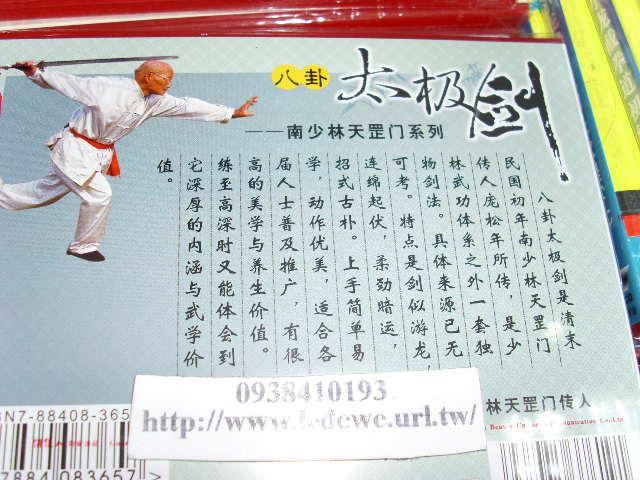 八卦
太极剑
——南少林天罡门系列
八卦太极剑是清末
民国初年南少林天罡门
传人庞松年所传，是少
林武功体系之外一套独
物剑法。具体来源已无
可考。特点是剑似游龙，
连绵起伏，柔劲暗运，
招式古朴。上手简单易
学，动作优美，适合各
届人士普及推广，有很
高的美学与养生价值。
练至高深时又能体会到
它深厚的内涵与武学价
值。
林天罡门传人
0938410193
http://www.ledewe.url.tw/
N7-88408-365
7884 083657 >